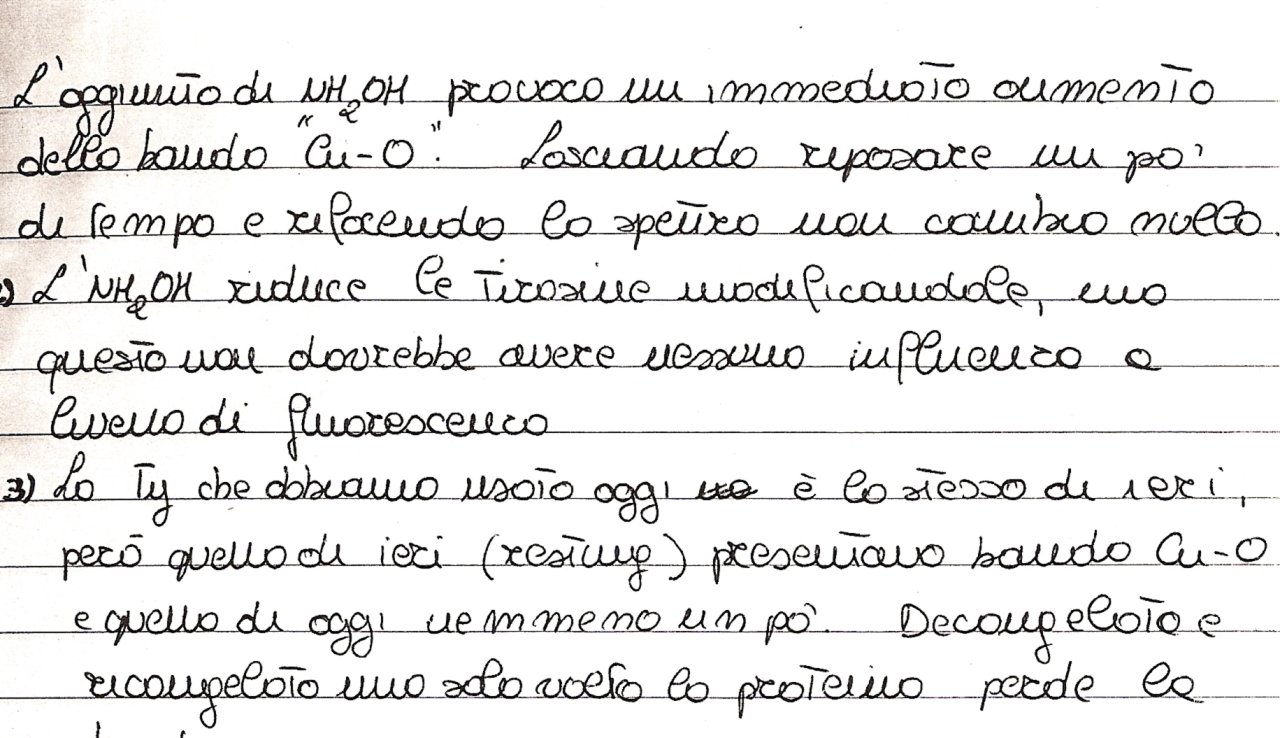 L'aggiunta di NH2OH provoca un immediato aumento
della banda "Cu-O". Lasciando riposare un po'
di tempo e rifacendo lo spettro non cambia nulla.
L'NH2OH riduce le tirosine modificandole, ma
questo non dovrebbe avere nessuna influenza a
livello di fluorescenza
3) La Ty che abbiamo usato oggi è la stessa di ieri,
però quella di ieri (resting) presentava banda Cu-O
e quella di oggi nemmeno un pò. Decongelata e
ricongelata una sola volta la proteina perde la